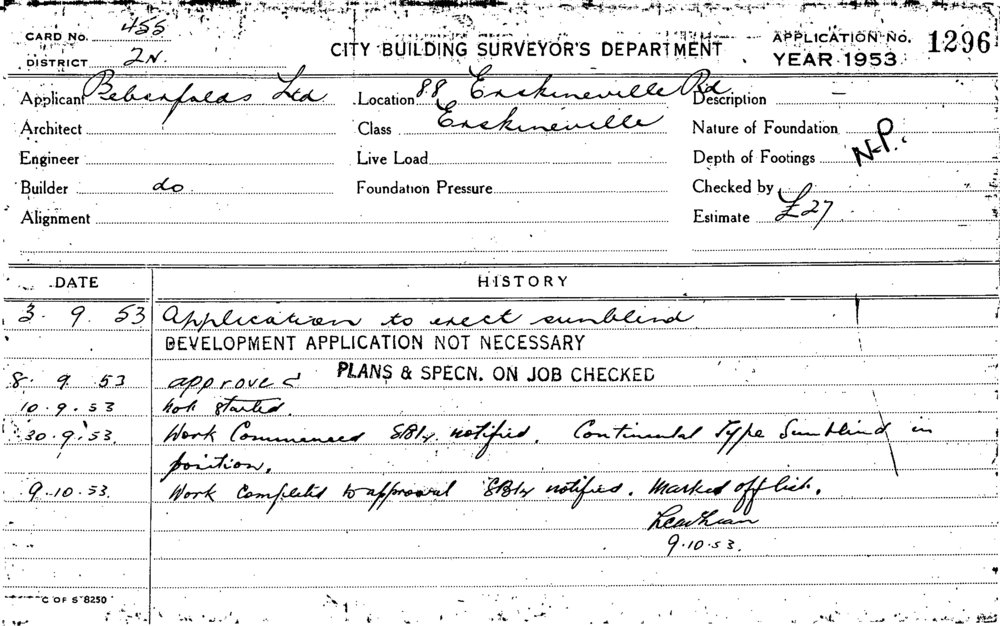 CARD NO. 455
DISTRICT 2N.
CITY BUILDING SURVEYOR'S DEPARTMENT
APPLICATION NO. 1296
YEAR 1953
Applicant Bebarfalds Ltd Location 88 Erskineville Rd Description —
Architect Class Erskineville Nature of Foundation
Engineer Live Load Depth of Footings N.P.
Builder do Foundation Pressure Checked by
Alignment Estimate £27
DATE HISTORY
3. 9. 53 Application to erect sunblind
DEVELOPMENT APPLICATION NOT NECESSARY
8. 9. 53 approved PLANS & SPECN. ON JOB CHECKED
10.9.53 not started.
30.9.53. Work Commenced notified. Continental Type Sunblind in
position.
9.10.53. Work completed to approval notified. Marked off list.
9.10.53.
C OF S 8250